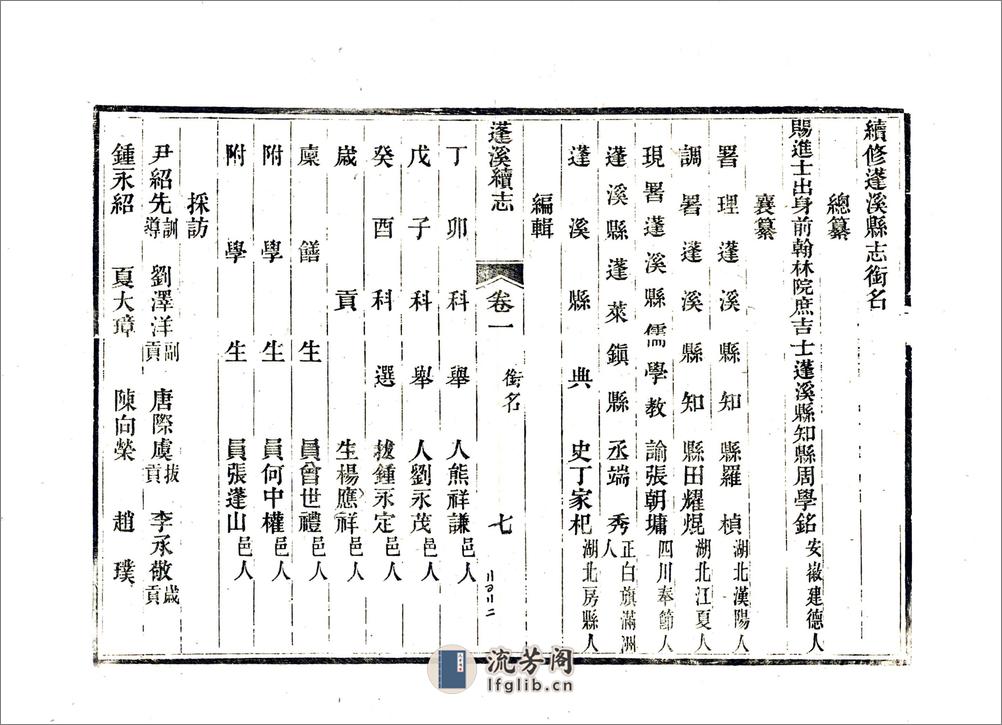 續修蓬溪縣志銜名
總纂
賜進士出身前翰林院庶吉士蓬溪縣知縣周學銘安徽建德人
襄纂
署理蓬溪縣知縣羅楨湖北漢陽人
調署蓬溪縣知縣田耀焜湖北江夏人
現署蓬溪縣儒學教諭張朝墉四川奉節人
蓬溪縣蓬萊鎮縣丞端秀正白旗滿洲人
蓬溪縣典史丁家杞湖北房縣人
編輯
蓬溪續志 卷一 銜名 七
丁卯科舉人熊祥謙邑人
戊子科舉人劉永茂邑人
癸酉科選拔鍾永定邑人
歲貢生楊應祥邑人
廩膳生員曾世禮邑人
附學生員何中權邑人
附學生員張蓬山邑人
採訪
尹紹先訓導 劉澤洋副貢 唐際虞拔貢 李承敬歲貢
鍾永紹 夏大璋 陳向榮 趙璞
流芳阁
lfglib.cn